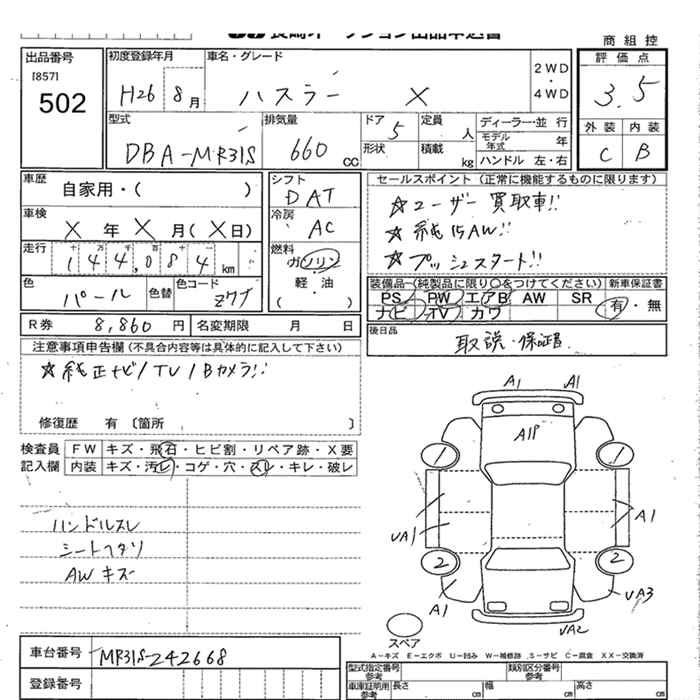 商組控
出品番号
[857]
502
初度登録年月
H26 8月
車名・グレード
ハスラー X
2WD・4WD
評価点
3.5
外装 内装
C B
型式
DBA-MR31S
排気量
660 CC
ドア 5
形状
定員 人
積載 kg
ディーラー・並行
モデル年式 年
ハンドル 左・右
車歴 自家用・( )
車検 X年X月(X日)
走行 十万千百十
144,084 km
色 パール
色替
色コード Z7T
シフト DAT
冷房 AC
燃料 ガソリン
軽・油
( )
セールスポイント(正常に機能するものに限ります)
☆ユーザー買取車!!
☆純15AW!!
☆プッシュスタート!!
装備品(純製品に限り○をつけてください)
PS PW エアB AW SR
ナビ TV カワ
新車保証書
有・無
R券 8,860円
名変期限 月 日
後日品
取説・保証書
注意事項申告欄(不具合内容等は具体的に記入して下さい)
☆純正ナビ/TV/Bカメラ!!
修復歴 有〔箇所 〕
検査員記入欄
FW キズ・飛石・ヒビ割・リペア跡・X要
内装 キズ・汚レ・コゲ・穴・スレ・キレ・破レ
ハンドルスレ
シートヘタリ
AWキズ
A1 A1
A1P
1 1
UA1 A1
2 2
A1 UA3
UA2
スペア
A-キズ E-エクボ U-凹み W-補修跡 S-サビ C-腐食 XX-交換済
車台番号 MR31S-242668
登録番号
型式指定番号 参考
類別区分番号 参考
車庫証明用 参考
長さ cm 幅 cm 高さ cm